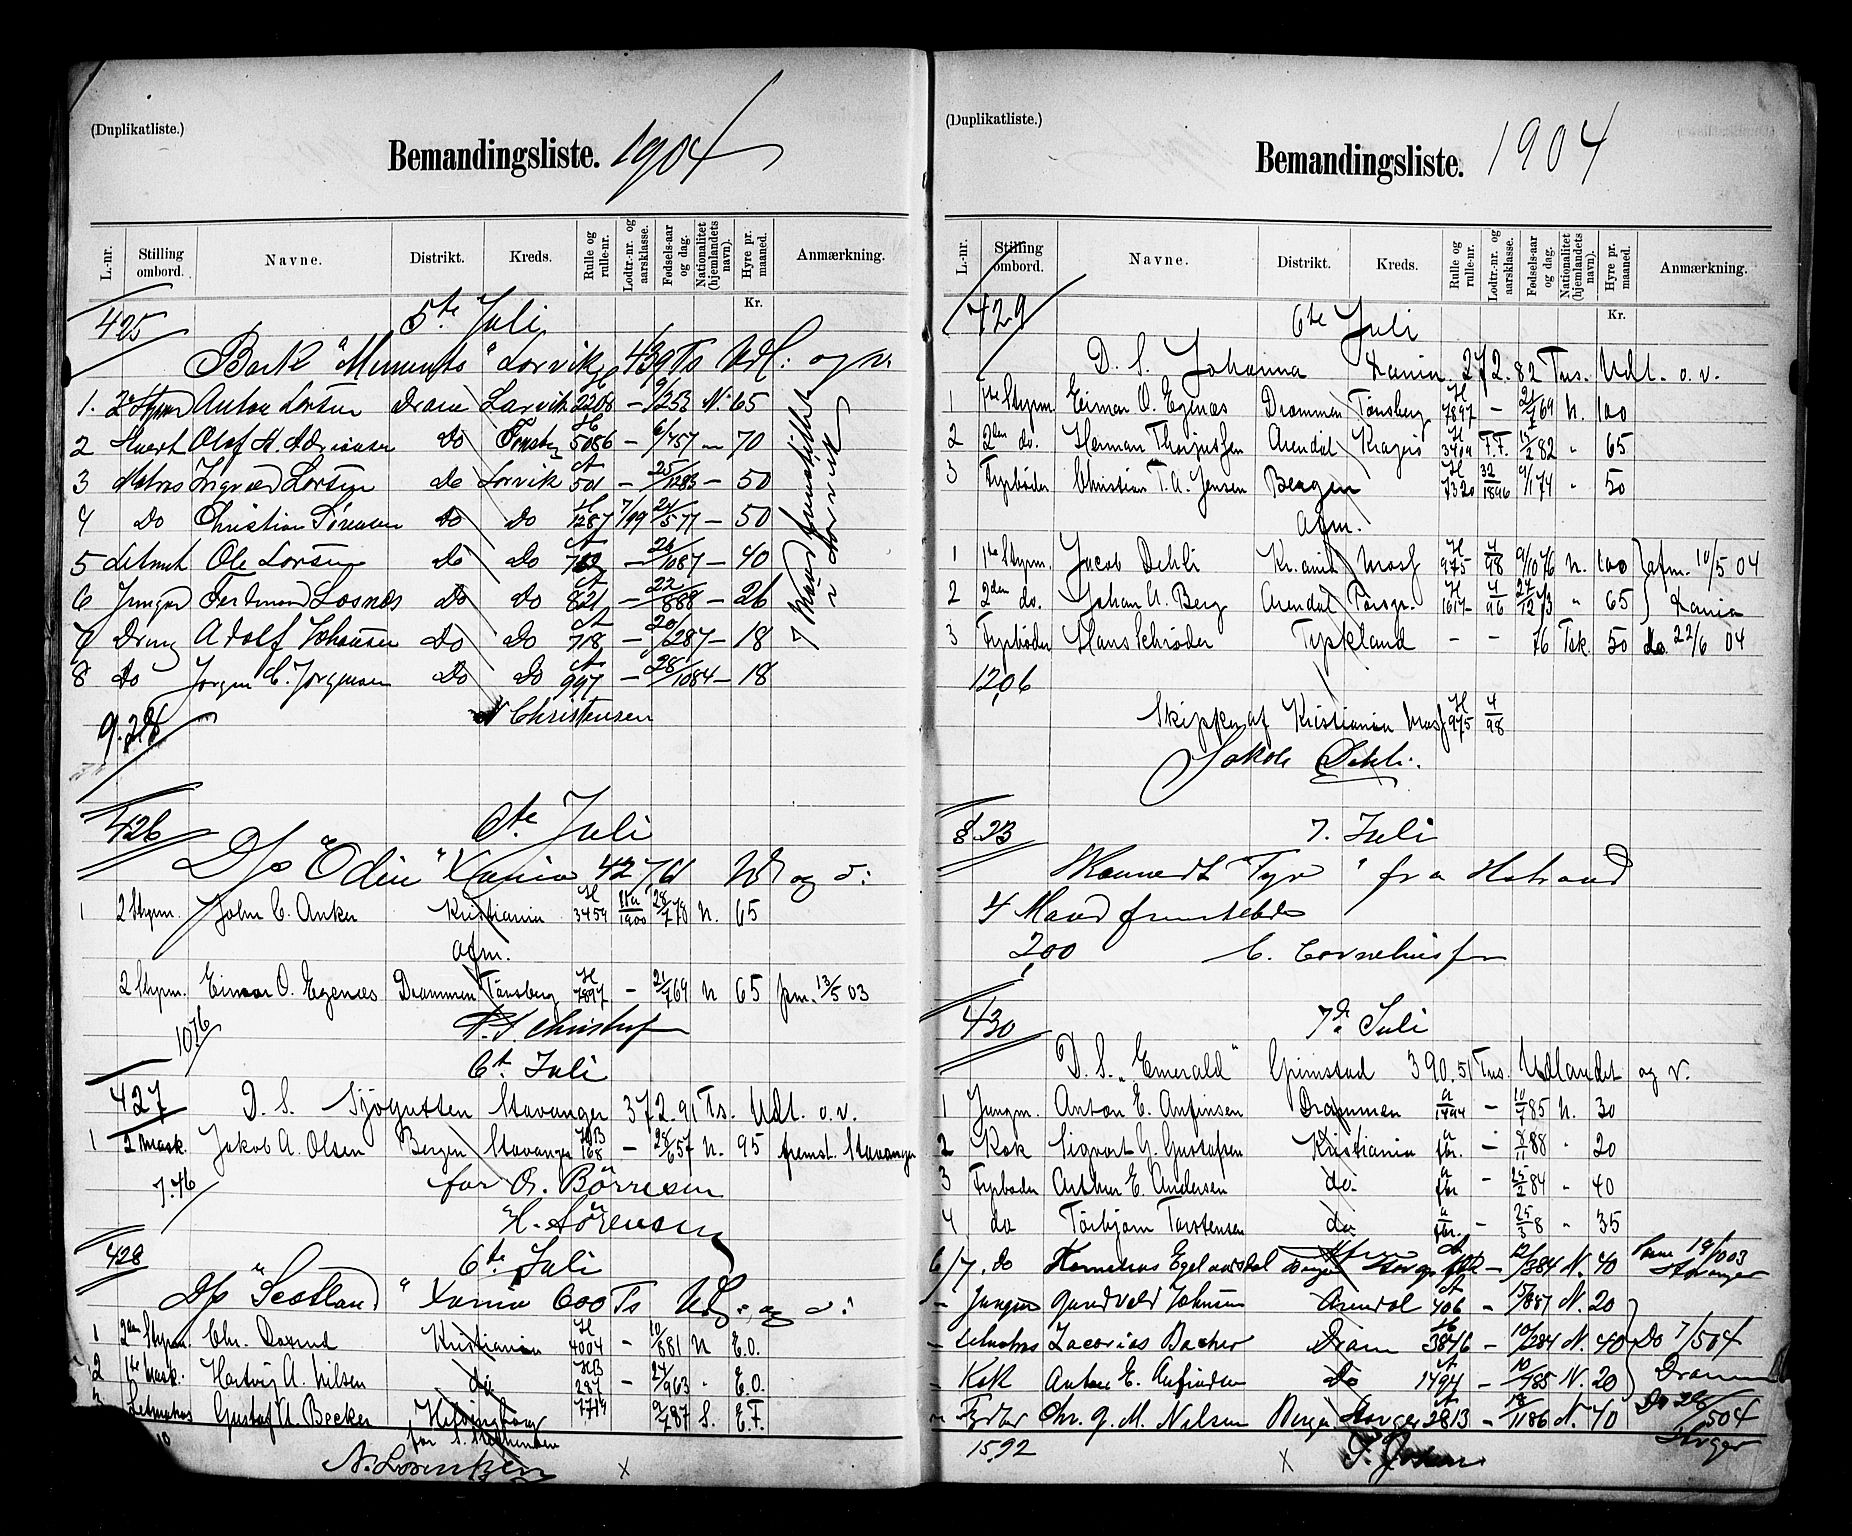 (Duplikatliste.)
Bemandingsliste. 1904
L.-nr. Stilling ombord. Navne. Distrikt. Kreds. Rulle og rulle-nr. Lodtr.-nr. og aarsklasse. Fødsels-aar og dag. Nationalitet (hjemlandets navn). Hyre pr. maaned. Anmærkning.
Kr.
425 5te Juli
Bark " Larvik 439 Ts Udl. og v.
1. 2 Styrm Anton Larsen Dram Larvik H 2208 – 9/2 53 N. 65
2 Stuert Olaf H. Do Tønsberg H 5086 – 57 – 70
3 Matros Ingvald Larsen do Larvik A 501 – 25/12 83 – 50
4 Do Christian Sørensen Do Do H 1287 7/99 24/5 77 – 50
5 Letmat Ole Larsen Do Do A – 26/10 87 – 40
6 Jungm Ferdinand Losnæs Do Do A 821 – 22/8 88 – 26
7 Dreng Adolf Johansen Do Do A 718 – 20/2 87 – 18
8 Do Jørgen C. Jørgensen Do Do A 997 – 28/10 84 – 18
7 Mand fremstillet i Larvik
Christensen
9.28
426 6te Juli
D/s "Odin" Xania 42761 Udl og v:
1 2 Styrm. John C. Anker Kristiania H 3459 1900 28/7 78 N. 65
afm.
2 Styrm. Einar O. Egenæs Drammen Tønsberg H 7897 – 21/7 69 N 65 pm. 13/5 03
1076
6te Juli
427 D. S. Sjøgutten Stavanger 372.91 Ts. Udl. o. v.
1 2 Mask. Jakob A. Olsen Bergen Stavanger HB 168 – 28/6 57 N. 95 fremst. Stavanger
7.46 for O. Børresen
H. Sørensen
428 6te Juli
D/s "Scotland" Xania 600 Ts Udl. og v:
1 2den Styrm. Chr. Kristiania H 4004 – 10/8 81 N E.O.
2 1te Mask. Hartvig A. Nilsen do HB 287 – 24/9 63 " E.O.
3 Letmatros Gustaf A. Becker Helsingborg 87 S. E.F.
for
N. Lorentzen x
(Duplikatliste.)
Bemandingsliste. 1904
L.-nr. Stilling ombord. Navne. Distrikt. Kreds. Rulle og rulle-nr. Lodtr.-nr. og aarsklasse. Fødsels-aar og dag. Nationalitet (hjemlandets navn). Hyre pr. maaned. Anmærkning.
Kr.
429 6te Juli
D. S. Johanna Xania 272.82 Tns. Udl. o. v.
1 1te Styrm. Einar O. Egenæs Drammen Tønsberg H 7897 – 21/7 69 N. 100
2 2den do. Herman Arendal Kragerø H 3404 F.F. 82 " 65
3 Fyrbøder Christian T. A. Jensen Bergen H 7320 32/1896 9/1 74 " 50
afm.
1 1te Styrm. Jacob Dehli Kr.ania Moss H 975 4/98 9/10 76 N. 100 afm. 10/5 04
2 2den do. Johan A. Berg Arendal Porsgr. H 1617 4/96 27/12 73 " 65 Xania
3 Fyrbøder Hans Schrøder Tyskland – – 76 Tsk. 50 do. 22/6 04
1206
Skipper af Kristiania Moss H 975 4/98
Jakob Dehli.
8.23 7. Juli
"Tyr" fra Hstrand
4 Mand fremstilledes
200 C. Corneliusen
430 7de Juli
D. S. "Emerald" Grimstad 390.51 Tns. Udlandet og v.
1 Jungm. Anton E. Anfinsen Drammen A 1494 – 10/7 85 N. 30
2 Kok Sigvart G. Gustafsen Kristiania A fbr. – 8/11 88 " 20
3 Fyrbøder Arthur E. Andersen do. A fbr – 25/2 84 " 40
4 do Torbjørn Torstensen do A fbr. – 25/3 8 " 35
6/7. do Egelandsdal Bergen 84 N. 40 19/10 03 Stavanger
– Jungm Gundvald Johnsen Arendal A 406 – 87 N. 20
– Letmatros Zacarias Backer Dram H 3846 – 10/2 84 N. 40 Do 7/5 04
– Kok Anton E. Anfindsen Do A 1494 – 10/7 85 N. 20 Drammen
" Fyrbø Chr. G. M. Nilsen Bergen Stavger A 2813 – 18/11 86 N. 40 Do 28/5 04
1592 Stvger
x